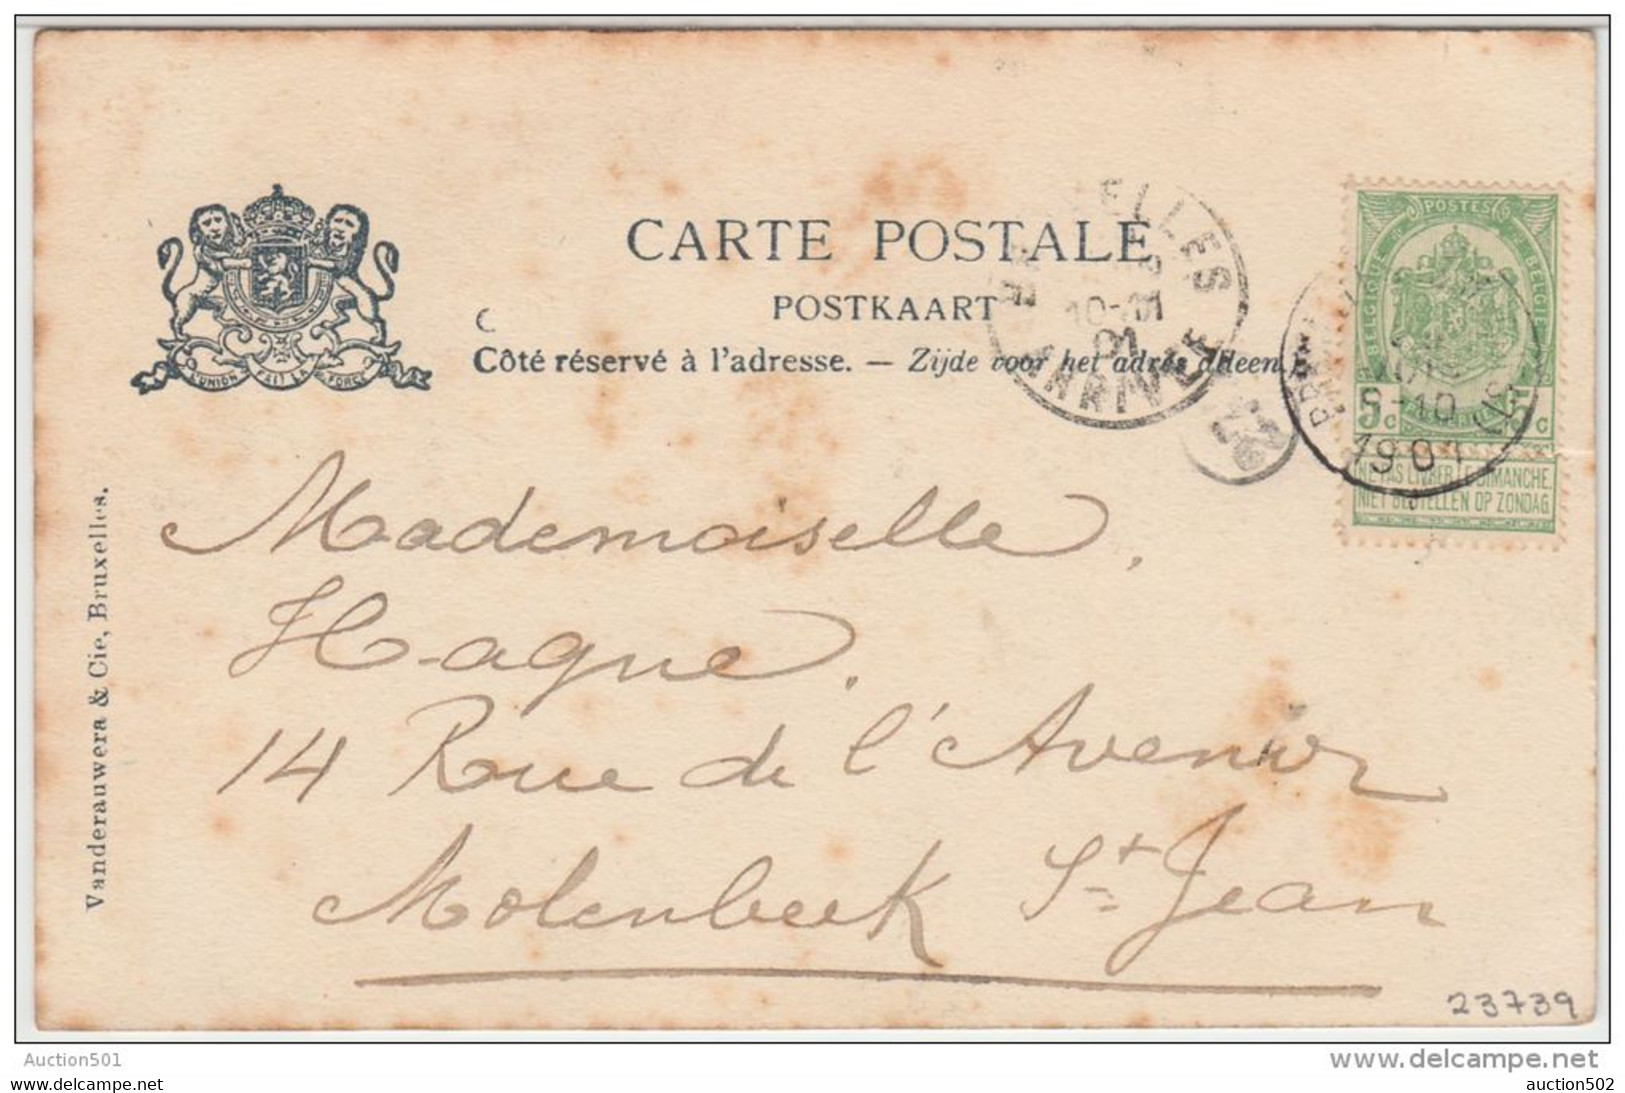 CARTE POSTALE
POSTKAART
Côté réservé à l'adresse. — Zijde voor het adres alleen.
L'UNION FAIT LA FORCE
ELLES
10-M
01
ARRIVEE
POSTES
BELGIQUE
BELGIE
5c 5c
8-10
1901
NE PAS LIVRER LE DIMANCHE
NIET BESTELLEN OP ZONDAG
Mademoiselle,
Hague.
14 Rue de l'Avenir
Molenbeek St Jean
Vanderauwera & Cie, Bruxelles.
23739
Auction501
www.delcampe.net
auction502
auction502